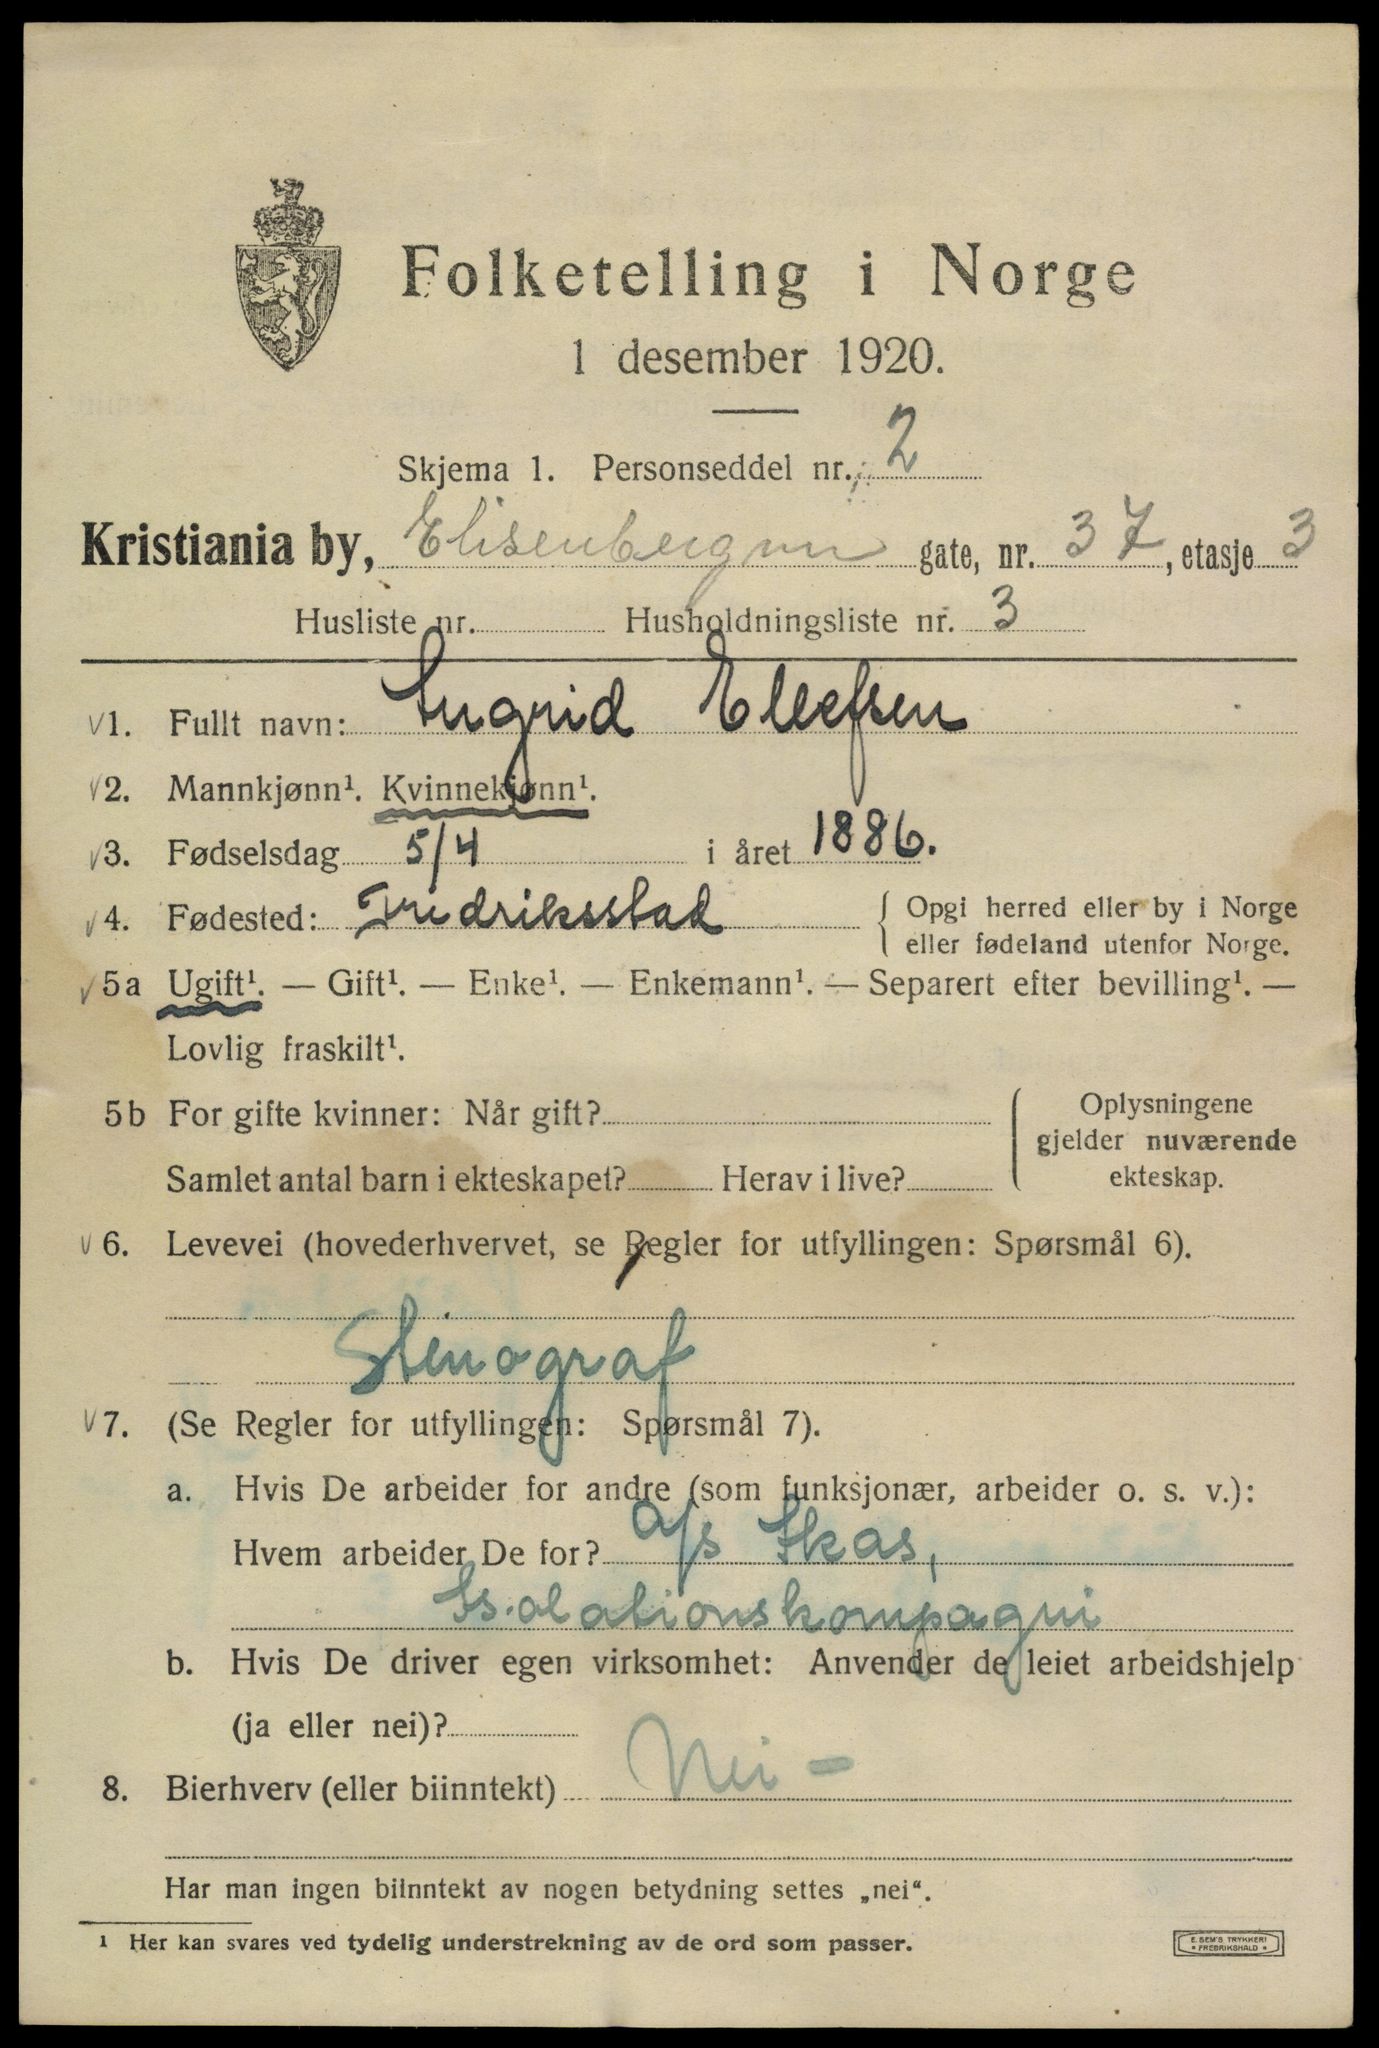 Folketelling i Norge
1 desember 1920.
Skjema 1. Personseddel nr. 2
Kristiania by, Elisenbergvn gate, nr. 37, etasje 3
Husliste nr. Husholdningsliste nr. 3
v1. Fullt navn: Ingrid Ellefsen
v2. Mannkjønn¹. Kvinnekjønn¹.
v3. Fødselsdag 5/4 i året 1886.
v4. Fødested: Fredriksstad { Opgi herred eller by i Norge
eller fødeland utenfor Norge.
v5a Ugift¹. — Gift¹. — Enke¹. — Enkemann¹. — Separert efter bevilling¹. —
Lovlig fraskilt¹.
5b For gifte kvinner: Når gift? { Oplysningene
gjelder nuværende
Samlet antal barn i ekteskapet? Herav i live? ekteskap.
v6. Levevei (hovederhvervet, se Regler for utfyllingen: Spørsmål 6).
Stenograf
v7. (Se Regler for utfyllingen: Spørsmål 7).
a. Hvis De arbeider for andre (som funksjonær, arbeider o. s. v.):
Hvem arbeider De for? a/s Ikas,
Isolationskompagni
b. Hvis De driver egen virksomhet: Anvender de leiet arbeidshjelp
(ja eller nei)?
8. Bierhverv (eller biinntekt) Nei –
Har man ingen biinntekt av nogen betydning settes „nei“.
¹ Her kan svares ved tydelig understrekning av de ord som passer.
E. SEM'S TRYKKERI
• FREDRIKSHALD •